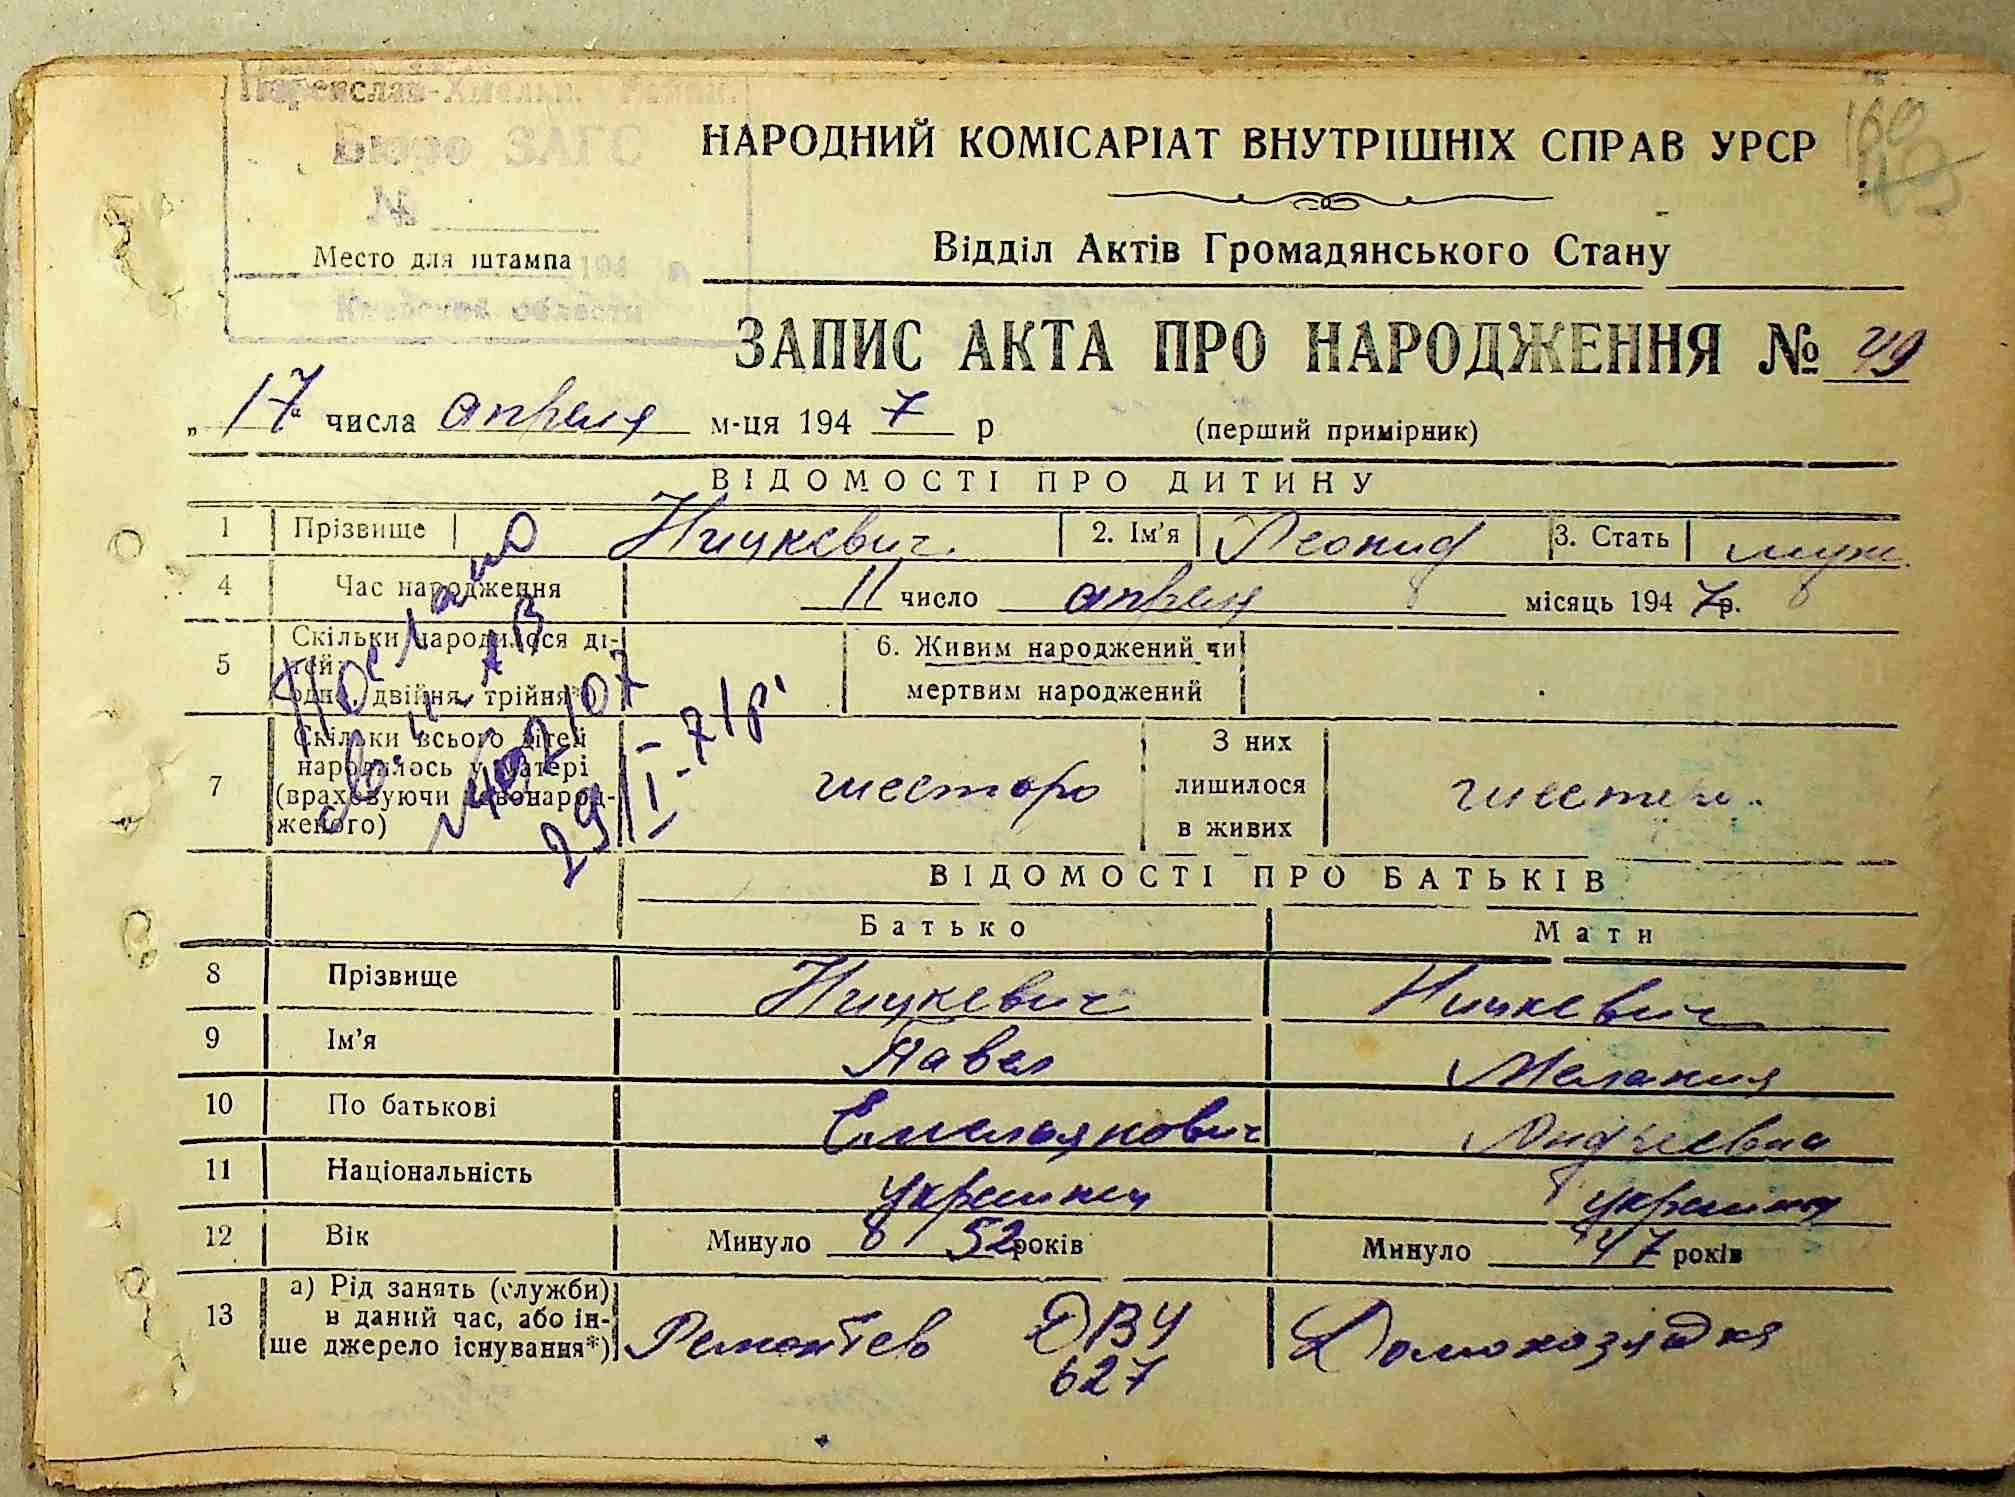 Переяслав-Хмельн. Район.
Бюро ЗАГС
№
НАРОДНИЙ КОМІСАРІАТ ВНУТРІШНІХ СПРАВ УРСР
Место для штампа
194
Киевской области
Відділ Актів Громадянського Стану
ЗАПИС АКТА ПРО НАРОДЖЕННЯ № 49
„ 17 " числа апреля м-ця 194 7 р (перший примірник)
ВІДОМОСТІ ПРО ДИТИНУ
1 Прізвище Ницкевич 2. Ім'я Леонид 3. Стать муж.
4 Час народження 11 число апреля місяць 194 7р.
5 Скільки народилося ді-
тей:
одна, двійня, трійня*)
6. Живим народжений чи
мертвим народжений
Послано
св. II-АВ
№402107
29/I-71р.
7 Скільки всього дітей
народилось у матері
(враховуючи новонарод-
женого)
шестеро
З них
лишилося
в живих
шестеро
ВІДОМОСТІ ПРО БАТЬКІВ
Батько Мати
8 Прізвище Ницкевич Ницкевич
9 Ім'я Павел Мелания
10 По батькові Емельянович Андреевна
11 Національність украинец украинка
12 Вік Минуло 52 років Минуло 47 років
13 а) Рід занять (служби)
в даний час, або ін-
ше джерело існування*)
ДВУ
627
Домохозяйка